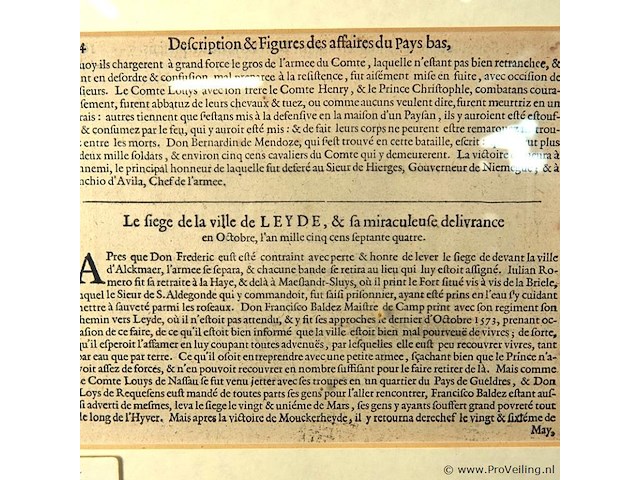 4 Description & Figures des affaires du Pays bas,
quoy ils chargerent à grand force le gros de l'armee du Comte, laquelle n'estant pas bien retranchee, &
nt en desordre & confusion, mal preparee à la resistence, fut aisément mise en fuite, avec occision de
sieurs. Le Comte Louys avec son frere le Comte Henry, & le Prince Christophle, combatans coura-
sement, furent abbatuz de leurs chevaux & tuez, ou comme aucuns veulent dire, furent meurtriz en un
rais: autres tiennent que s'estans mis à la defensive en la maison d'un Paysan, ils y auroient esté estouf-
& consumez par le feu, qui y auroit esté mis: & de fait leurs corps ne peurent estre remarquez ni trou-
entre les morts. Don Bernardin de Mendoze, qui s'est trouvé en cette bataille, escrit plus
deux mille soldats, & environ cinq cens cavaliers du Comte qui y demeurerent. La victoire à
nnemi, le principal honneur de laquelle fut deferé au Sieur de Hierges, Gouverneur de Niemegue, & à
nchio d'Avila, Chef de l'armee.
Le siege de la ville de LEYDE, & sa miraculeuse delivrance
en Octobre, l'an mille cinq cens septante quatre.
APres que Don Frederic eust esté contraint avec perte & honte de lever le siege de devant la ville
d'Alckmaer, l'armee se separa, & chacune bande se retira au lieu qui luy estoit assigné. Iulian Ro-
mero fit sa retraite à la Haye, & delà à Maeslandt-Sluys, où il print le Fort situé vis à vis de la Briele,
uquel le Sieur de S. Aldegonde qui y commandoit, fut faisi prisonnier, ayant esté prins en l'eau s'y cuidant
mettre à sauveté parmi les roseaux. Don Francisco Baldez Maistre de Camp print avec son regiment son
hemin vers Leyde, où il n'estoit pas attendu, & y fit ses approches le dernier d'Octobre 1573, prenant oc-
asion de ce faire, de ce qu'il estoit bien informé que la ville estoit bien mal pourveuë de vivres; de sorte,
qu'il esperoit l'affamer en luy coupant toutes advenuës, par lesquelles elle eust peu recouvrer vivres, tant
par eau que par terre. Ce qu'il osoit entreprendre avec une petite armee, sçachant bien que le Prince n'a-
voit assez de forces, & n'en pouvoit recouvrer en nombre suffisant pour le faire retirer de là. Mais comme
e Comte Louys de Nassau se fut venu jetter avec ses troupes en un quartier du Pays de Gueldres, & Don
Loys de Requesens eust mandé de toutes parts ses gens pour l'aller rencontrer, Francisco Baldez estant aus-
si adverti de mesmes, leva le siege le vingt & uniéme de Mars, ses gens y ayants souffert grand povreté tout
le long de l'Hyver. Mais apres la victoire de Mouckerheyde, il y retourna derechef le vingt & sixiéme de
May,
© www.ProVeiling.nl